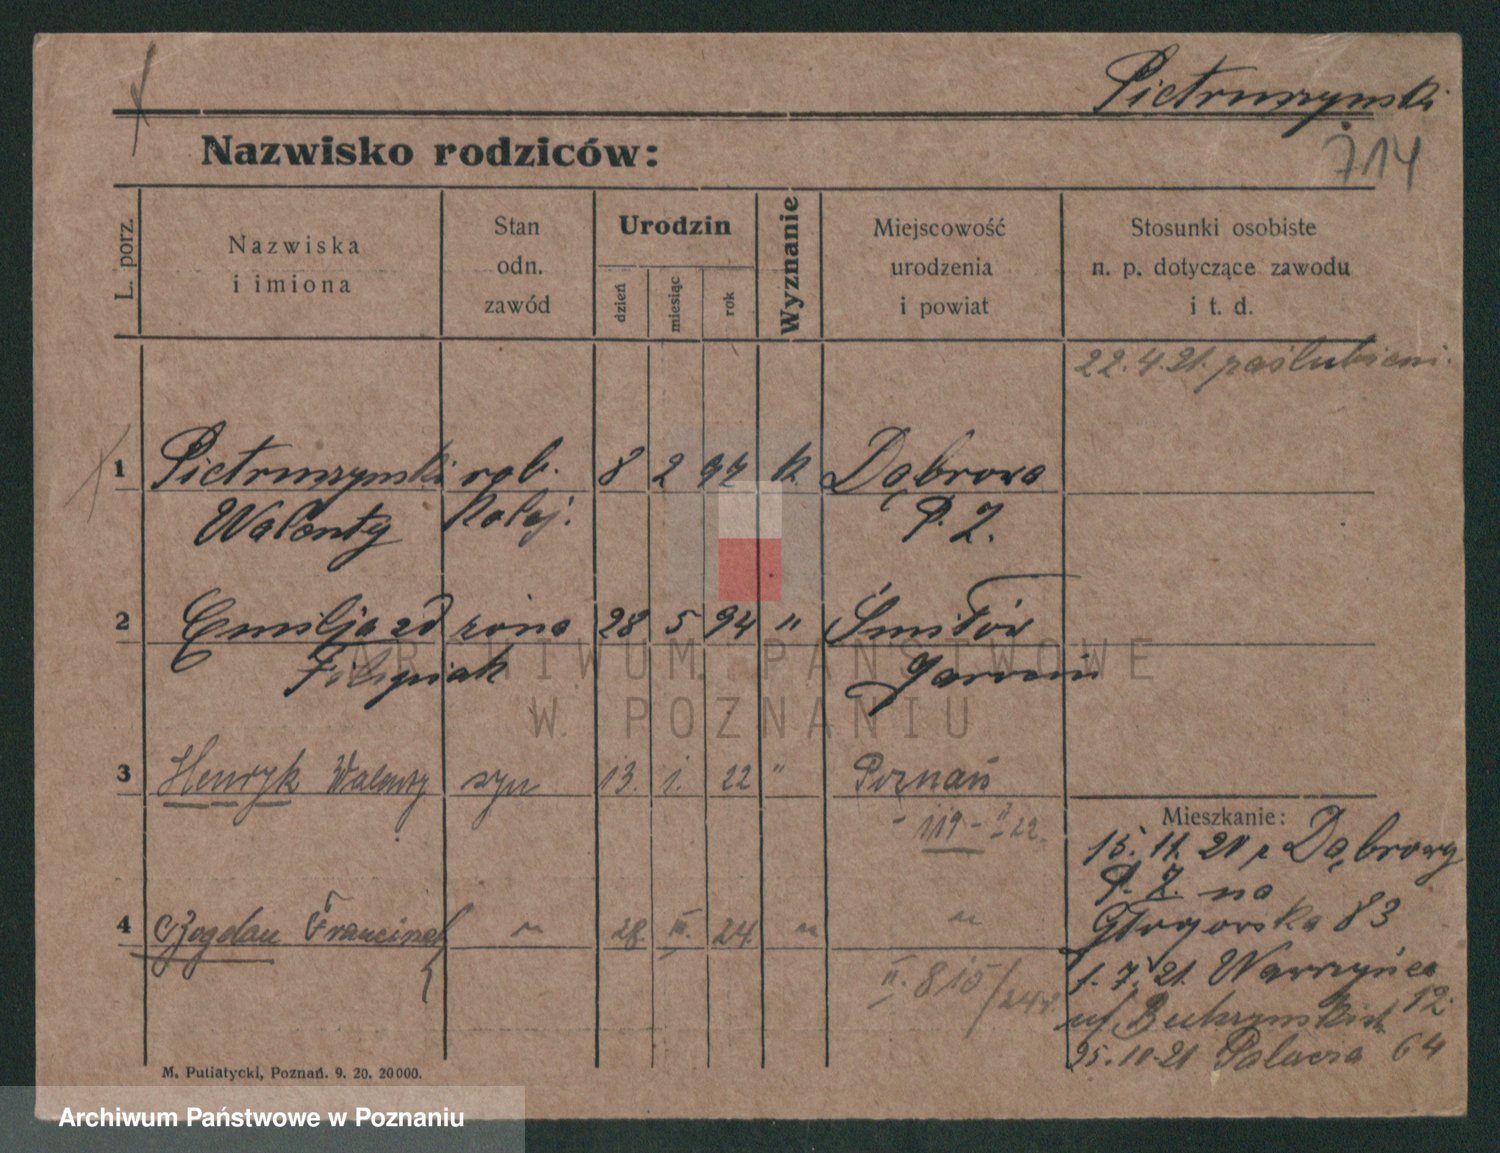 Pietruszynski
714
Nazwisko rodziców:
L. porz.
Nazwiska
i imiona
Stan
odn.
zawód
Urodzin
dzień
miesiąc
rok
Wyznanie
Miejscowość
urodzenia
i powiat
Stosunki osobiste
n. p. dotyczące zawodu
i t. d.
22.4.21. poślubieni.
1 Pietruszynski rob. 8 2 97 k. Dąbrowa
Walenty kolej. P. Z.
2 Emilja zd żona 28 5 94 " Śmiłów
Filipiak Jarocin
3 Henryk Walenty syn 13. 1. 22 " Poznań
- 119 - II 22.
Mieszkanie:
15. 11. 20 z Dąbrowy
P. Z. na
Głogowska 83
4 Bogdan Franciszek " 28. III. 24 " "
II. 815/24
1. 7. 21. Wawrzyńca 12
u/
25.10.21 Palacza 64
M. Putiatycki, Poznań. 9. 20. 20000.
ARCHIWUM PAŃSTWOWE
W POZNANIU
Archiwum Państwowe w Poznaniu